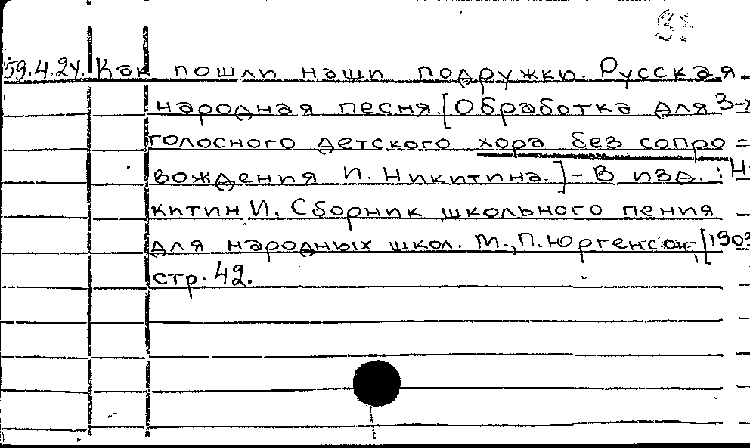 59.4.24. Как пошли наши подружки. Русская
народная песня [Обработка для 3-х
голосного детского хора без сопро=
вождения И. Никитина.] - В изд.: Ни
китин И. Сборник школьного пения
для народных школ. М., П. Юргенсон, [1903
стр. 42.